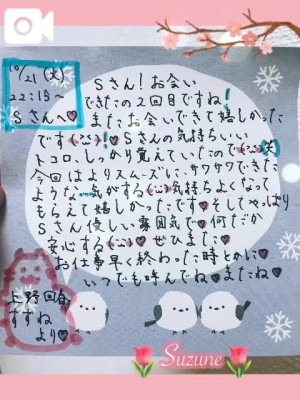 10/21(火)
22:15~
Sさんへ♡
Sさん!お会い
できたの2回目ですね!
またお会いできて嬉しかった
です(^^)!♡Sさんの気持ちいい
トコロ、しっかり覚えていたので(^^)笑
今回はよりスムーズに、サワサワできた
ような…気がする(^^)気持ちよくなって
もらえて嬉しかったです♡そしてやっぱり
Sさん優しい雰囲気で何だか
安心する(^^)♡ぜひまた♡
お仕事早く終わった時とかに♡
いつでも呼んでね♡またね♡
上野回春
すずね
より♡
Suzune